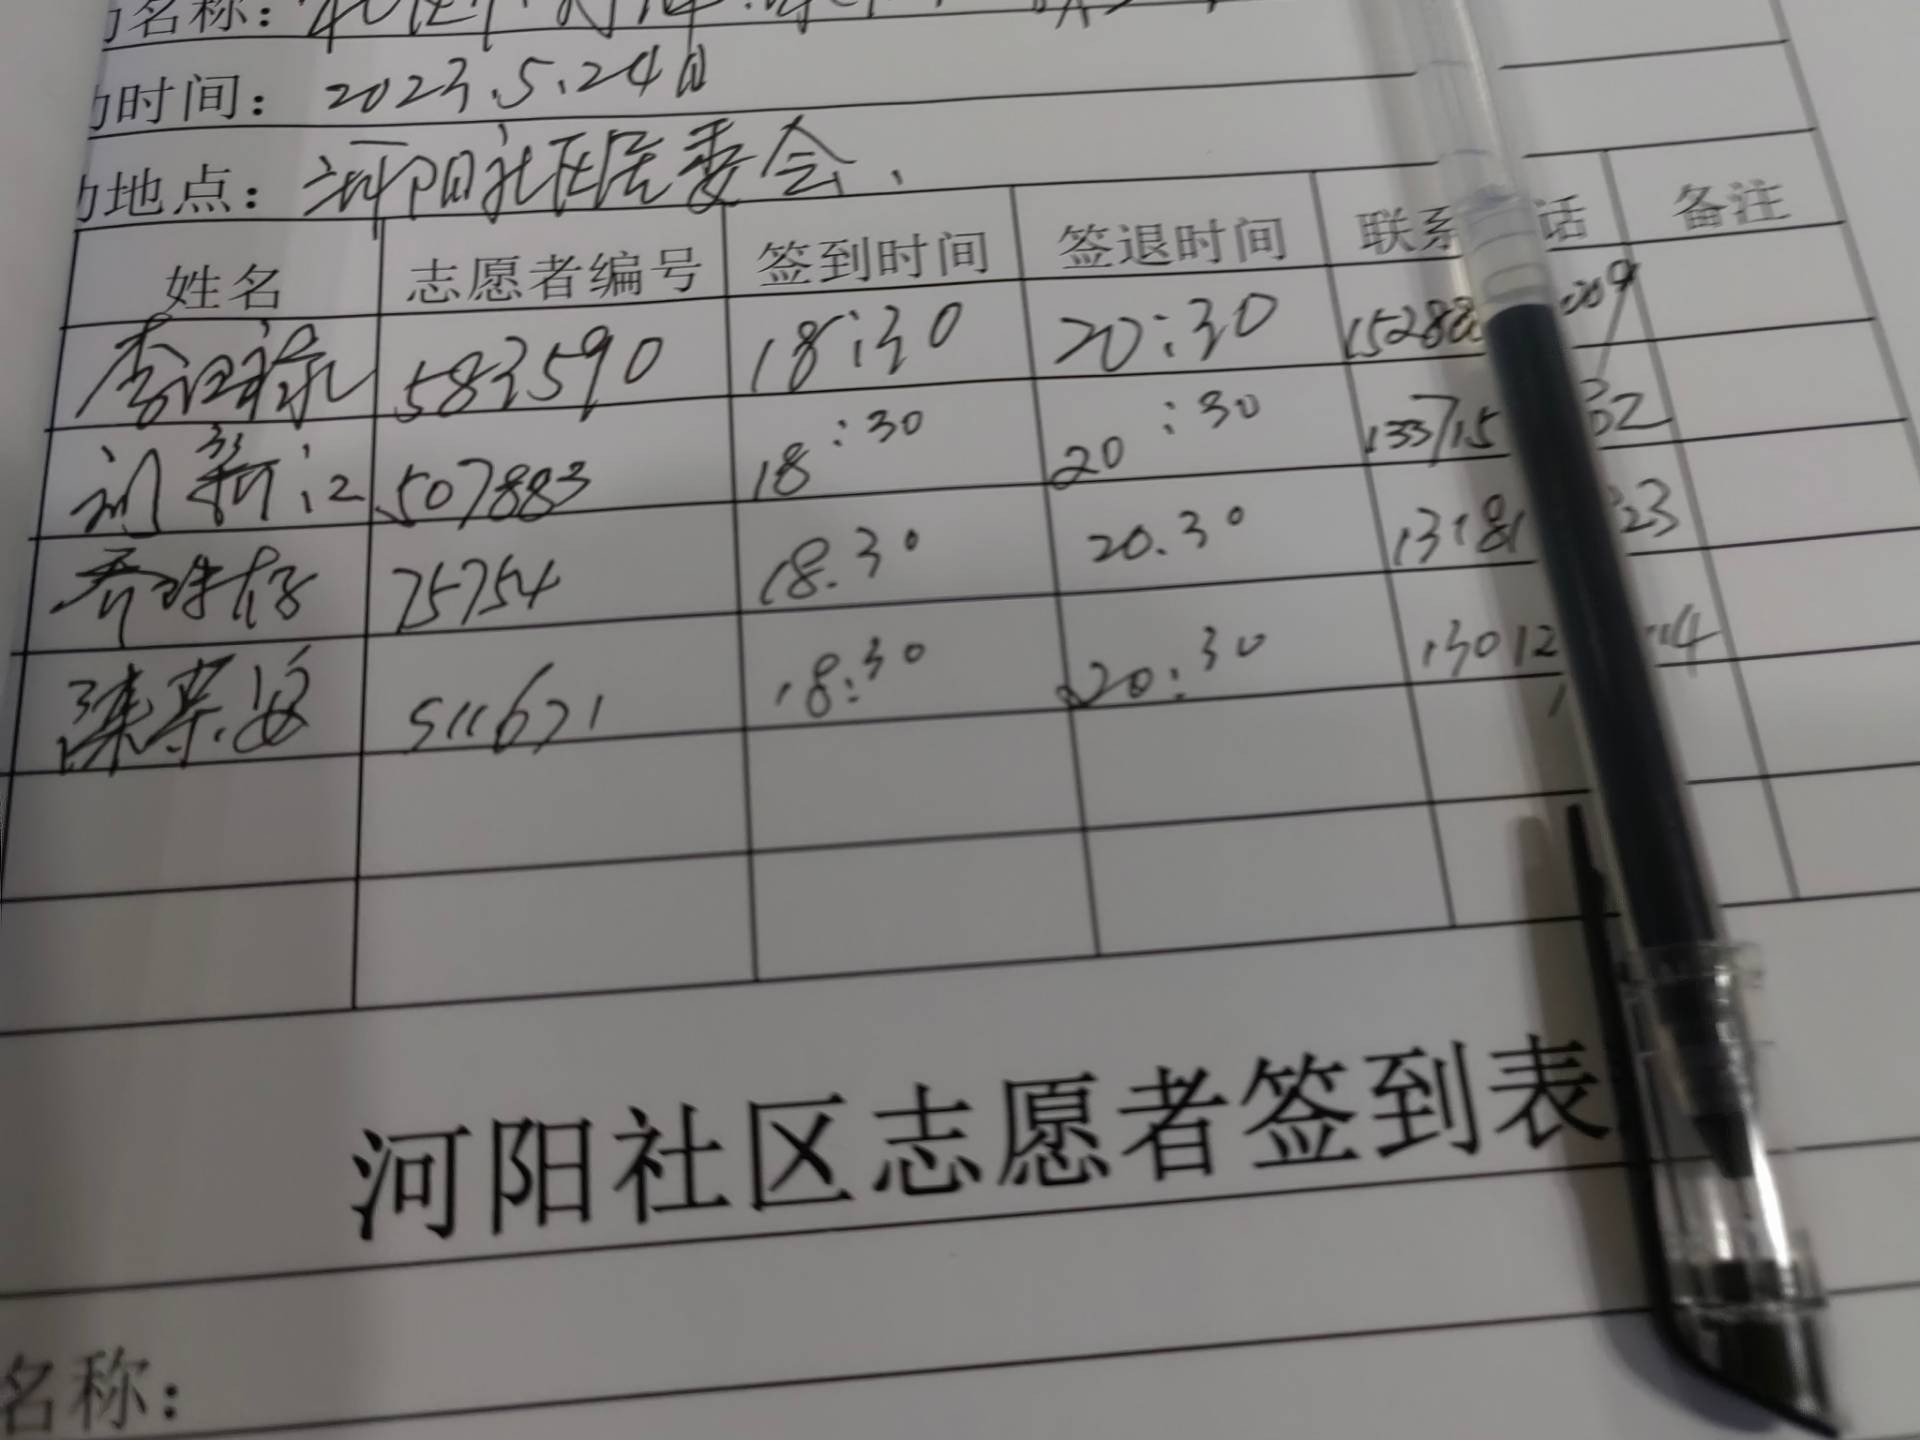 名称：
时间： 2023.5.24日
地点： 河阳社区居委会、
姓名 志愿者编号 签到时间 签退时间 联系 话 备注
583590 18:30 20:30 15288
刘新江 507883 18:30 20:30 133715 62
75754 18.30 20.30 13181 23
511671 18:30 20:30 13012 4
河阳社区志愿者签到表
名称：